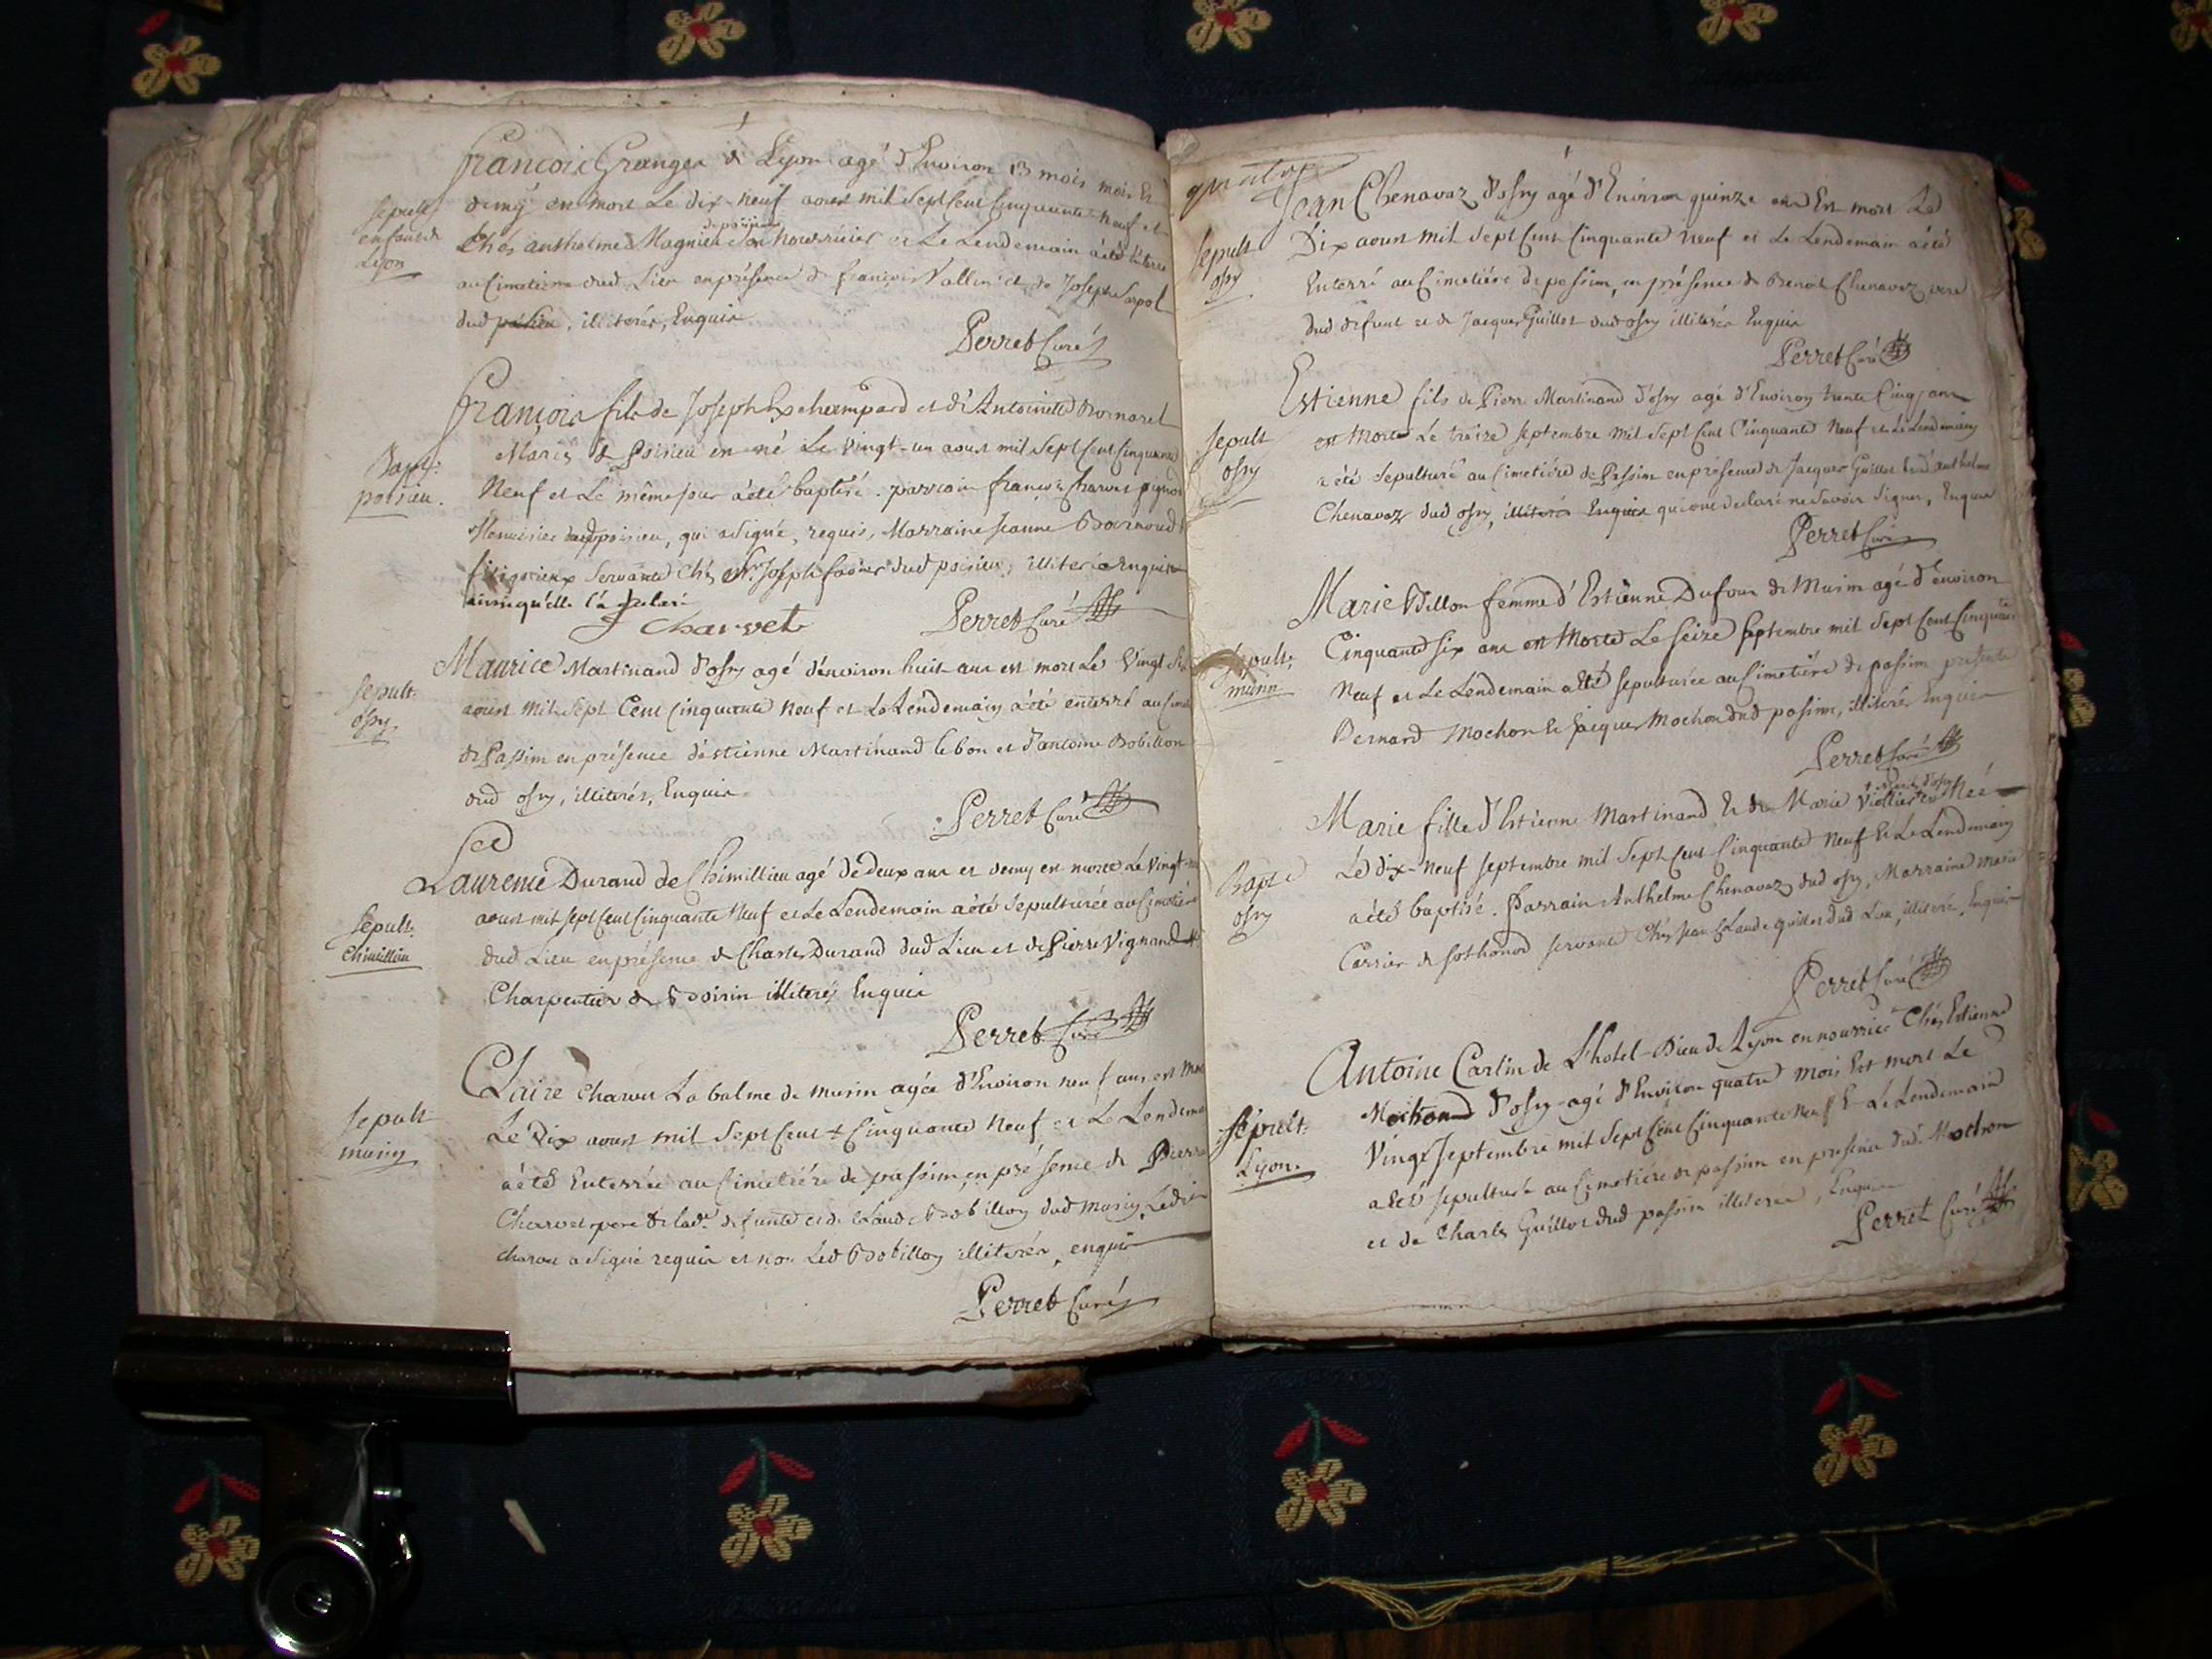 francois Granger de Lyon agé d'Environ 13 mois mois Et
demÿ en mort Le dix-neuf aoust mil Sept Cent Cinquante neuf et
de poisieu
Chés anthelme Magnien Son nourricier et Le Lendemain a été
au Cimetiere dud. Lieu en présence de françois Vallin et de Joseph
dud poisieu, illiterés, Enquis
sepult
enfant de
Lyon
Perret Curé
françois fils de Joseph Exchampard et d'Antoinette Bornarel
Mariés de Poisieu en né Le vingt-un aoust mil Sept Cent Cinquante
Neuf et Le même jour a été baptisé. parrain francois Charvet
Menuisier dud poisieu, qui a Signé, requis, Marraine Jeanne
Servante Chés Mr. Joseph dud poisieu, illiterée Enquise
ainsi qu'elle l'a declaré
Bapt:
poisieu.
J Charvet
Perret Curé
Maurice Martinand d'osry agé d'environ huit ans est mort Le Vingt
aoust Mil Sept Cent Cinquante neuf et Le Lendemain a été enterré au
de Passim en présence d'Estienne Martinand le bon et d'antoine Bobillon
dud osry, illiterés, Enquis
sepult.
osry
Perret Curé
Laurence Durand de Chimillieu agé de deux ans et demy en morte Le vingt
aoust mil sept Cent Cinquante Neuf et Le Lendemain a été Sepulturée au Cimetiére
dud Lieu en présence de Charles Durand dud Lieu et de Pierre Vignand
Charpentier de illiterés Enquis
Sepult.
Chimillieu
Perret Curé
Claire Charvet La balme de musin agée d'Environ neuf ans est
Le Dix aoust mil Sept Cent Cinquante Neuf et Le
a été Enterrée au Cimetiére de passim, en présence de Pierre
Charvet pere de lade. defunte et de Claude Bobillon dud Musin, Led
charvet a Signé requis et non Led Bobillon illiterés, enquis
Sepult
musin
Perret Curé
Jean Chenavaz d'osry agé d'Environ quinze ans Est mort Le
Dix aoust mil Sept Cent Cinquante Neuf et Le Lendemain a été
Enterré au Cimetiére de passim, en présence de Benoit Chenavaz pere
dud defunt et de Jacques Guillot dud osry illiterés Enquis
Sepult
osry
Perret Curé
Estienne fils de Pierre Martinand d'osry agé d'Environ trente Cinq ans
est Mort Le treize septembre mil Sept Cent Cinquante Neuf et Le Lendemain
a été Sepulturé au Cimetiére de Passim en présence de Jacques Guillot Et d'anthelme
Chenavaz dud osry, illiterés Enquis qui ont declaré ne Savoir Signer, Enquis
sepult
osry
Perret Curé
Marie femme d'Estienne Dufour de Musin agé d'environ
Cinquante six ans en Morte Le seize septembre mil Sept Cent Cinquante
Neuf et Le Lendemain a été sepulturée au Cimetiére de passim présents
Bernard Mochon Et Jacques Mochon dud passim, illiterés Enquis
Sepult:
musin
Perret Curé
Marie fille d'Estienne Martinand Et de Marie Viollier en Née
Le dix-Neuf septembre mil Sept Cent Cinquante Neuf Et Le Lendemain
a été baptisé. Parrain Anthelme Chenavaz dud osry, Marraine marie
Carrier de sothonod servante Chés Jean Claude guillot dud Lieu, illiterés, Enquis
Bapt
osry
Perret Curé
Antoine Carlin de L'hotel-Dieu de Lyon en nourrice Chés Estienne
Mochon d'osry agé d'Environ quatre Mois Est mort Le
Vingt septembre mil Sept Cent Cinquante Neuf Et Le Lendemain
a été sepulturé au Cimetiére de passim en presence dud. Mochon
et de Charles Guillot dud passim illiterés, Enquis
Sépult:
Lyon.
Perret Curé